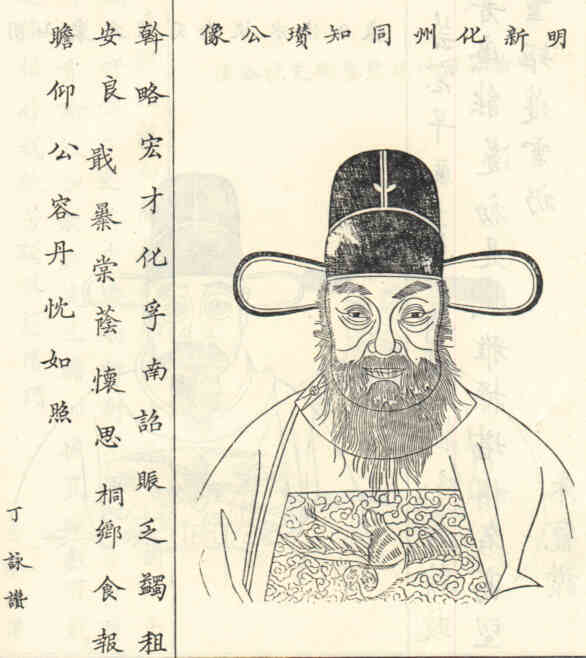 明新化州同知瓚公像
幹略宏才化孚南詔賑乏蠲租
安良戢暴棠蔭懷思桐鄉食報
瞻仰公容丹忱如照
丁詠讚